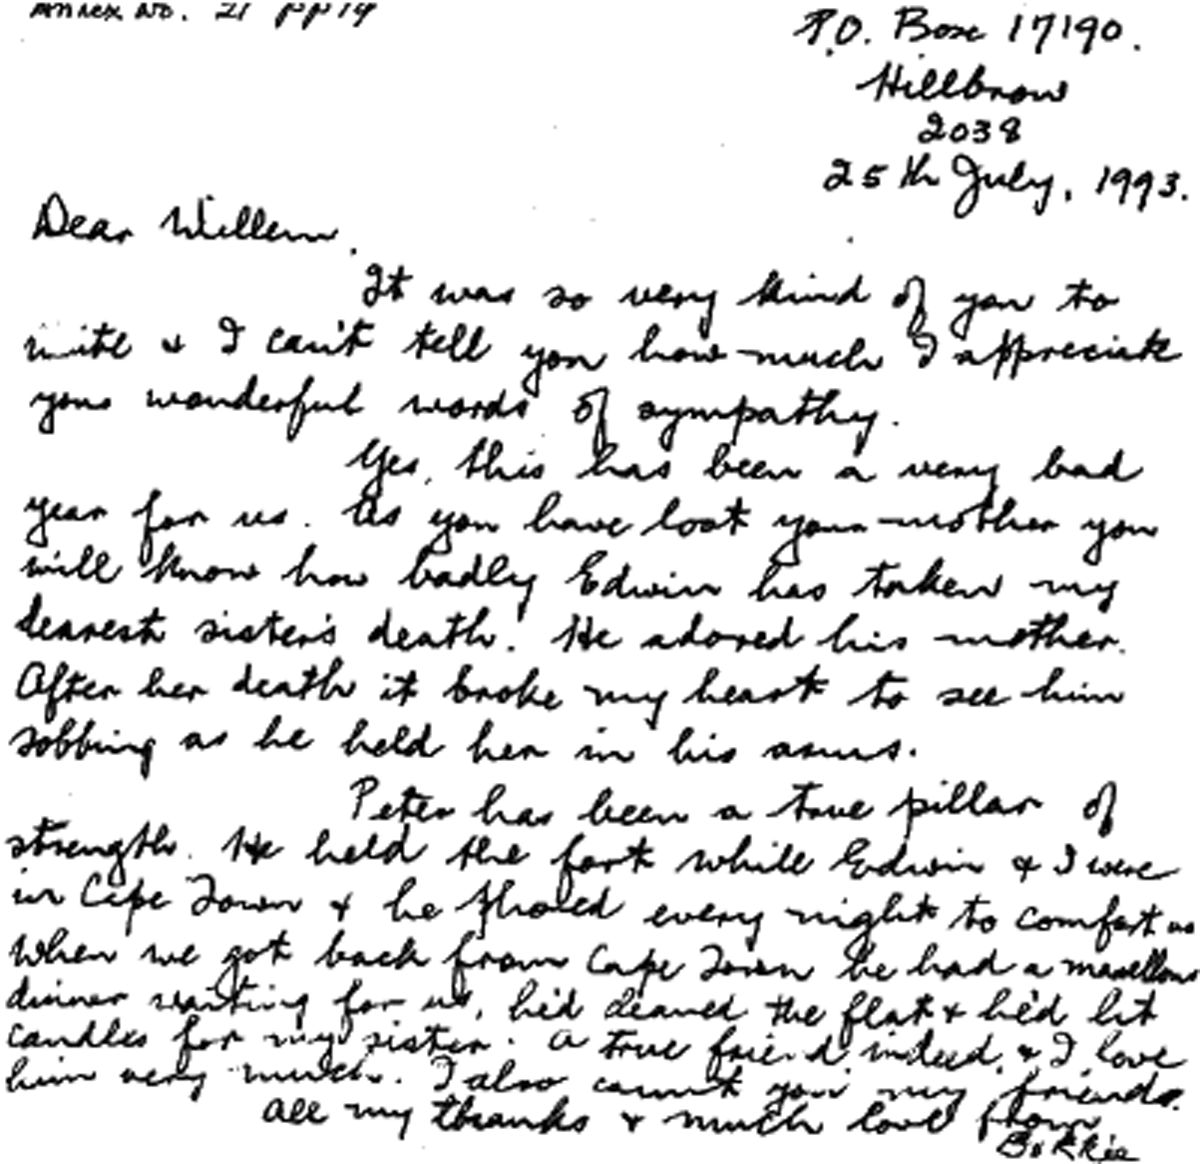 Annex No. 21 pp19
P.O. Box 17190.
Hillbrow
2038
25th July, 1993.
Dear Willem,
It was so very kind of you to
write & I can't tell you how much I appreciate
your wonderful words of sympathy.
Yes, this has been a very bad
year for us. As you have lost your mother you
will know how badly Edwin has taken my
dearest sister's death. He adored his mother.
After her death it broke my heart to see him
sobbing as he held her in his arms.
Peter has been a true pillar of
strength. He held the fort while Edwin & I were
in Cape Town & he phoned every night to comfort us
When we got back from Cape Town he had a marvellous
dinner waiting for us, he'd cleaned the flat & he'd lit
candles for my sister. A true friend indeed, & I love
him very much. I also count you my friends.
All my thanks & much love from
Bokkie